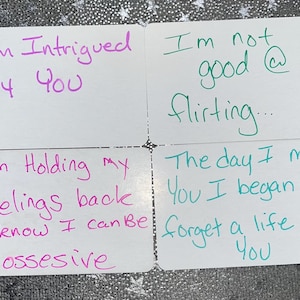 m Intrigued
y You
I'm not
good @
flirting...
m Holding my
elings back
know I can Be
ossesive
The day I m
You I began
forget a life
You